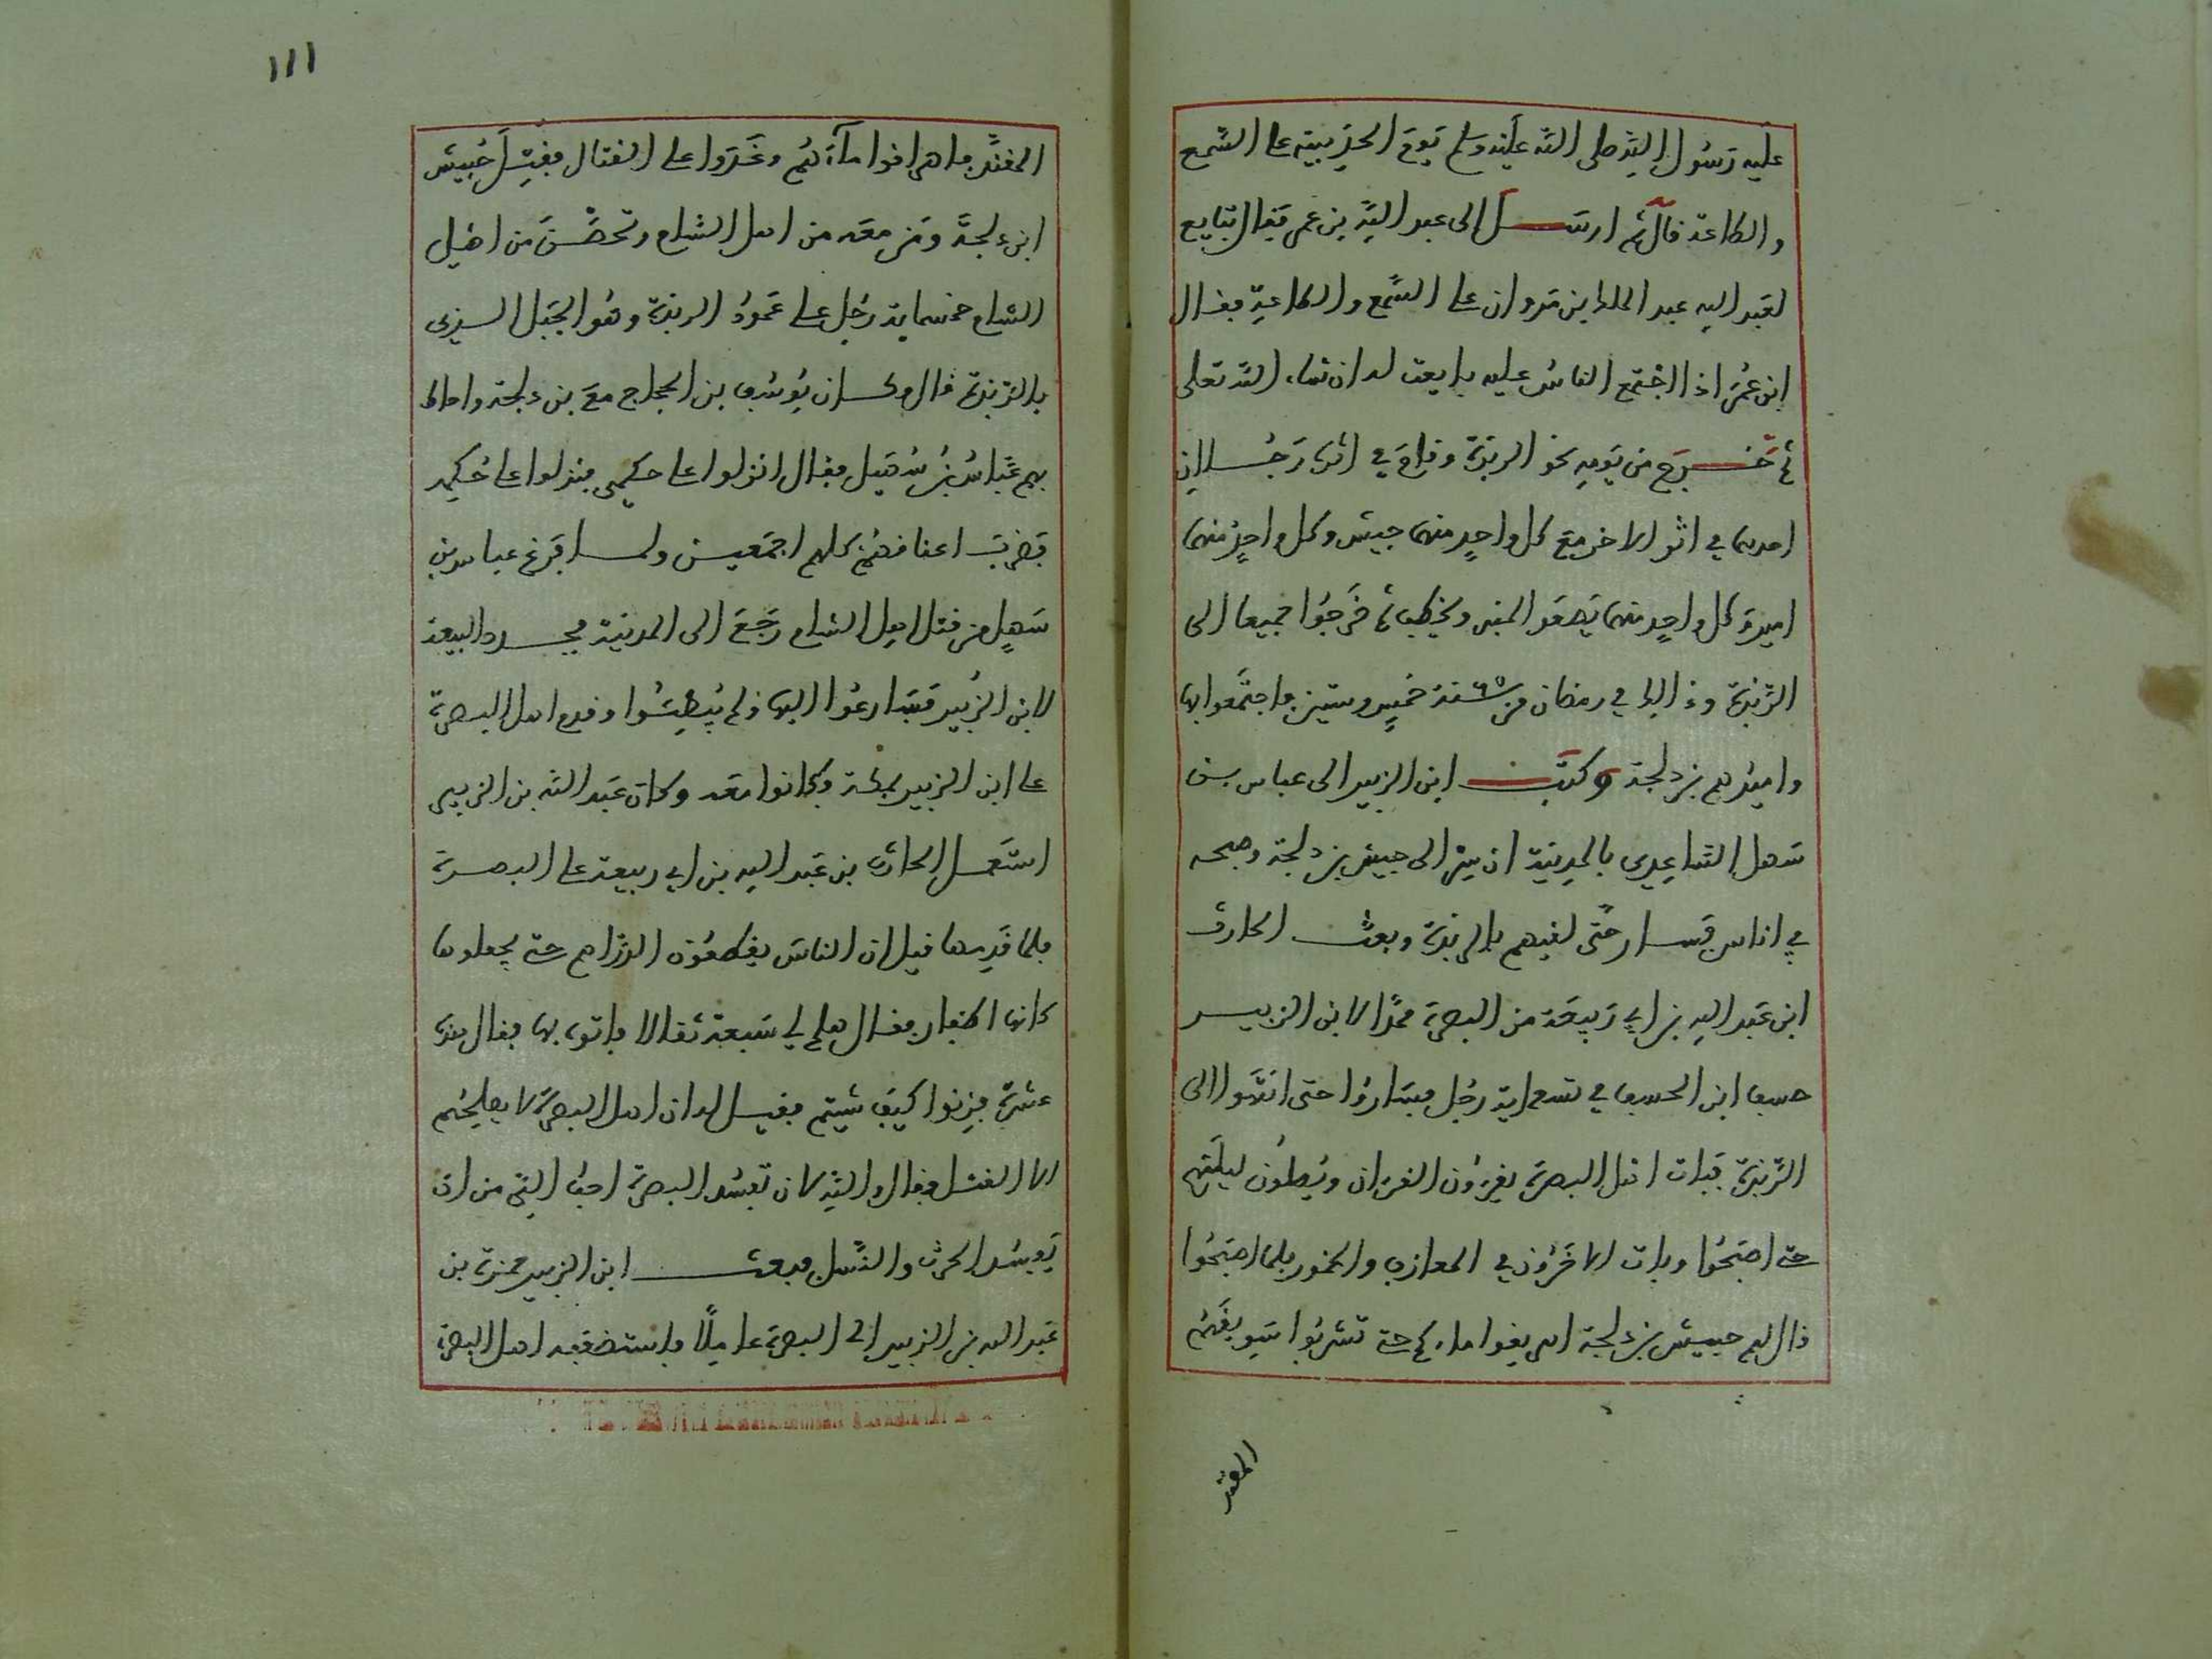 عليه رسول الله صلى الله عليه وسلم يوم الحديبية على السمع
والطاعة قال ثم ارسل إلى عبد الله بن عمر فقال تبايع
لعبد الله عبد الملك بن مروان على السمع والطاعة فقال
ابن عمر اذا اجتمع الناس عليه بايعت له ان شاء الله تعلى
ثم خرج من يومه نحو الربذة وقام في اثره رجلان
احدهما في اثر الاخر مع كل واحد منهما جيش وكل واحد منهما
اميره كل واحد منهما يصعد المنبر ويخطب ثم خرجوا جميعا الى
الربذة وذالك في رمضان من سنة ٦٥ خمس وستين واجتمعوا بها
واميرهم بن دلجة وكتب ابن الزبير الى عباس بن
سهل الساعدي بالمدينة ان سر الى حبيش بن دلجة وصحبه
في اناس فسار حتى لقيهم بالربذة وبعث الحارث
ابن عبد الله بن ابي ربيعة من البصرة مددا لابن الزبير
حنيف ابن الحنيف في تسعماية رجل فساروا حتى انتهوا الى
الربذة فبات اهل البصرة يقرءون القرءان ويصلون ليلتهم
حتى اصبحوا وبات الاخرون في المعازف والخمور فلما اصبحوا
قال لهم حبيش بن دلجة اهريقوا ماءكم حتى تشربوا سويقكم
المقند
١١١
المقند فاهراقوا ماءهم وغدوا على القتال فقتل حبيش
ابن دلجة ومن معه من اهل الشام وتحصن من اهل
الشام خمسماية رجل على عمود الربذة وهو الجبل الذي
بالربذة قال وكان يوسف بن الحجاج مع بن دلجة واحاط
بهم عباس بن سهيل فقال انزلوا على حكمي فنزلوا على حكمه
فضرب اعناقهم كلهم اجمعين ولما فرغ عباس بن
سهل من قتل اهل الشام رجع الى المدينة فجدد البيعة
لابن الزبير فتسارعوا اليها ولم يبطئوا وقدم اهل البصرة
على ابن الزبير بمكة وكانوا معه وكان عبد الله بن الزبير
استعمل الحارث بن عبد الله بن ابي ربيعة على البصرة
فلما قدمها قيل ان الناس يقطعون الدراهم حتى يجعلوها
كانها اظفار فقال هلم لي سبعة ثقالا فاتوه بها فقال هذه
عشرة فزنوا كيف شيتم فقيل له ان اهل البصرة لا يصلحهم
الا القتل فقال والله لان تفسد البصرة احب الي من ان
يفسد الحرث والنسل فبعث ابن الزبير حمزة بن
عبد الله بن الزبير الى البصرة عاملا فاستضعفه اهل البصرة